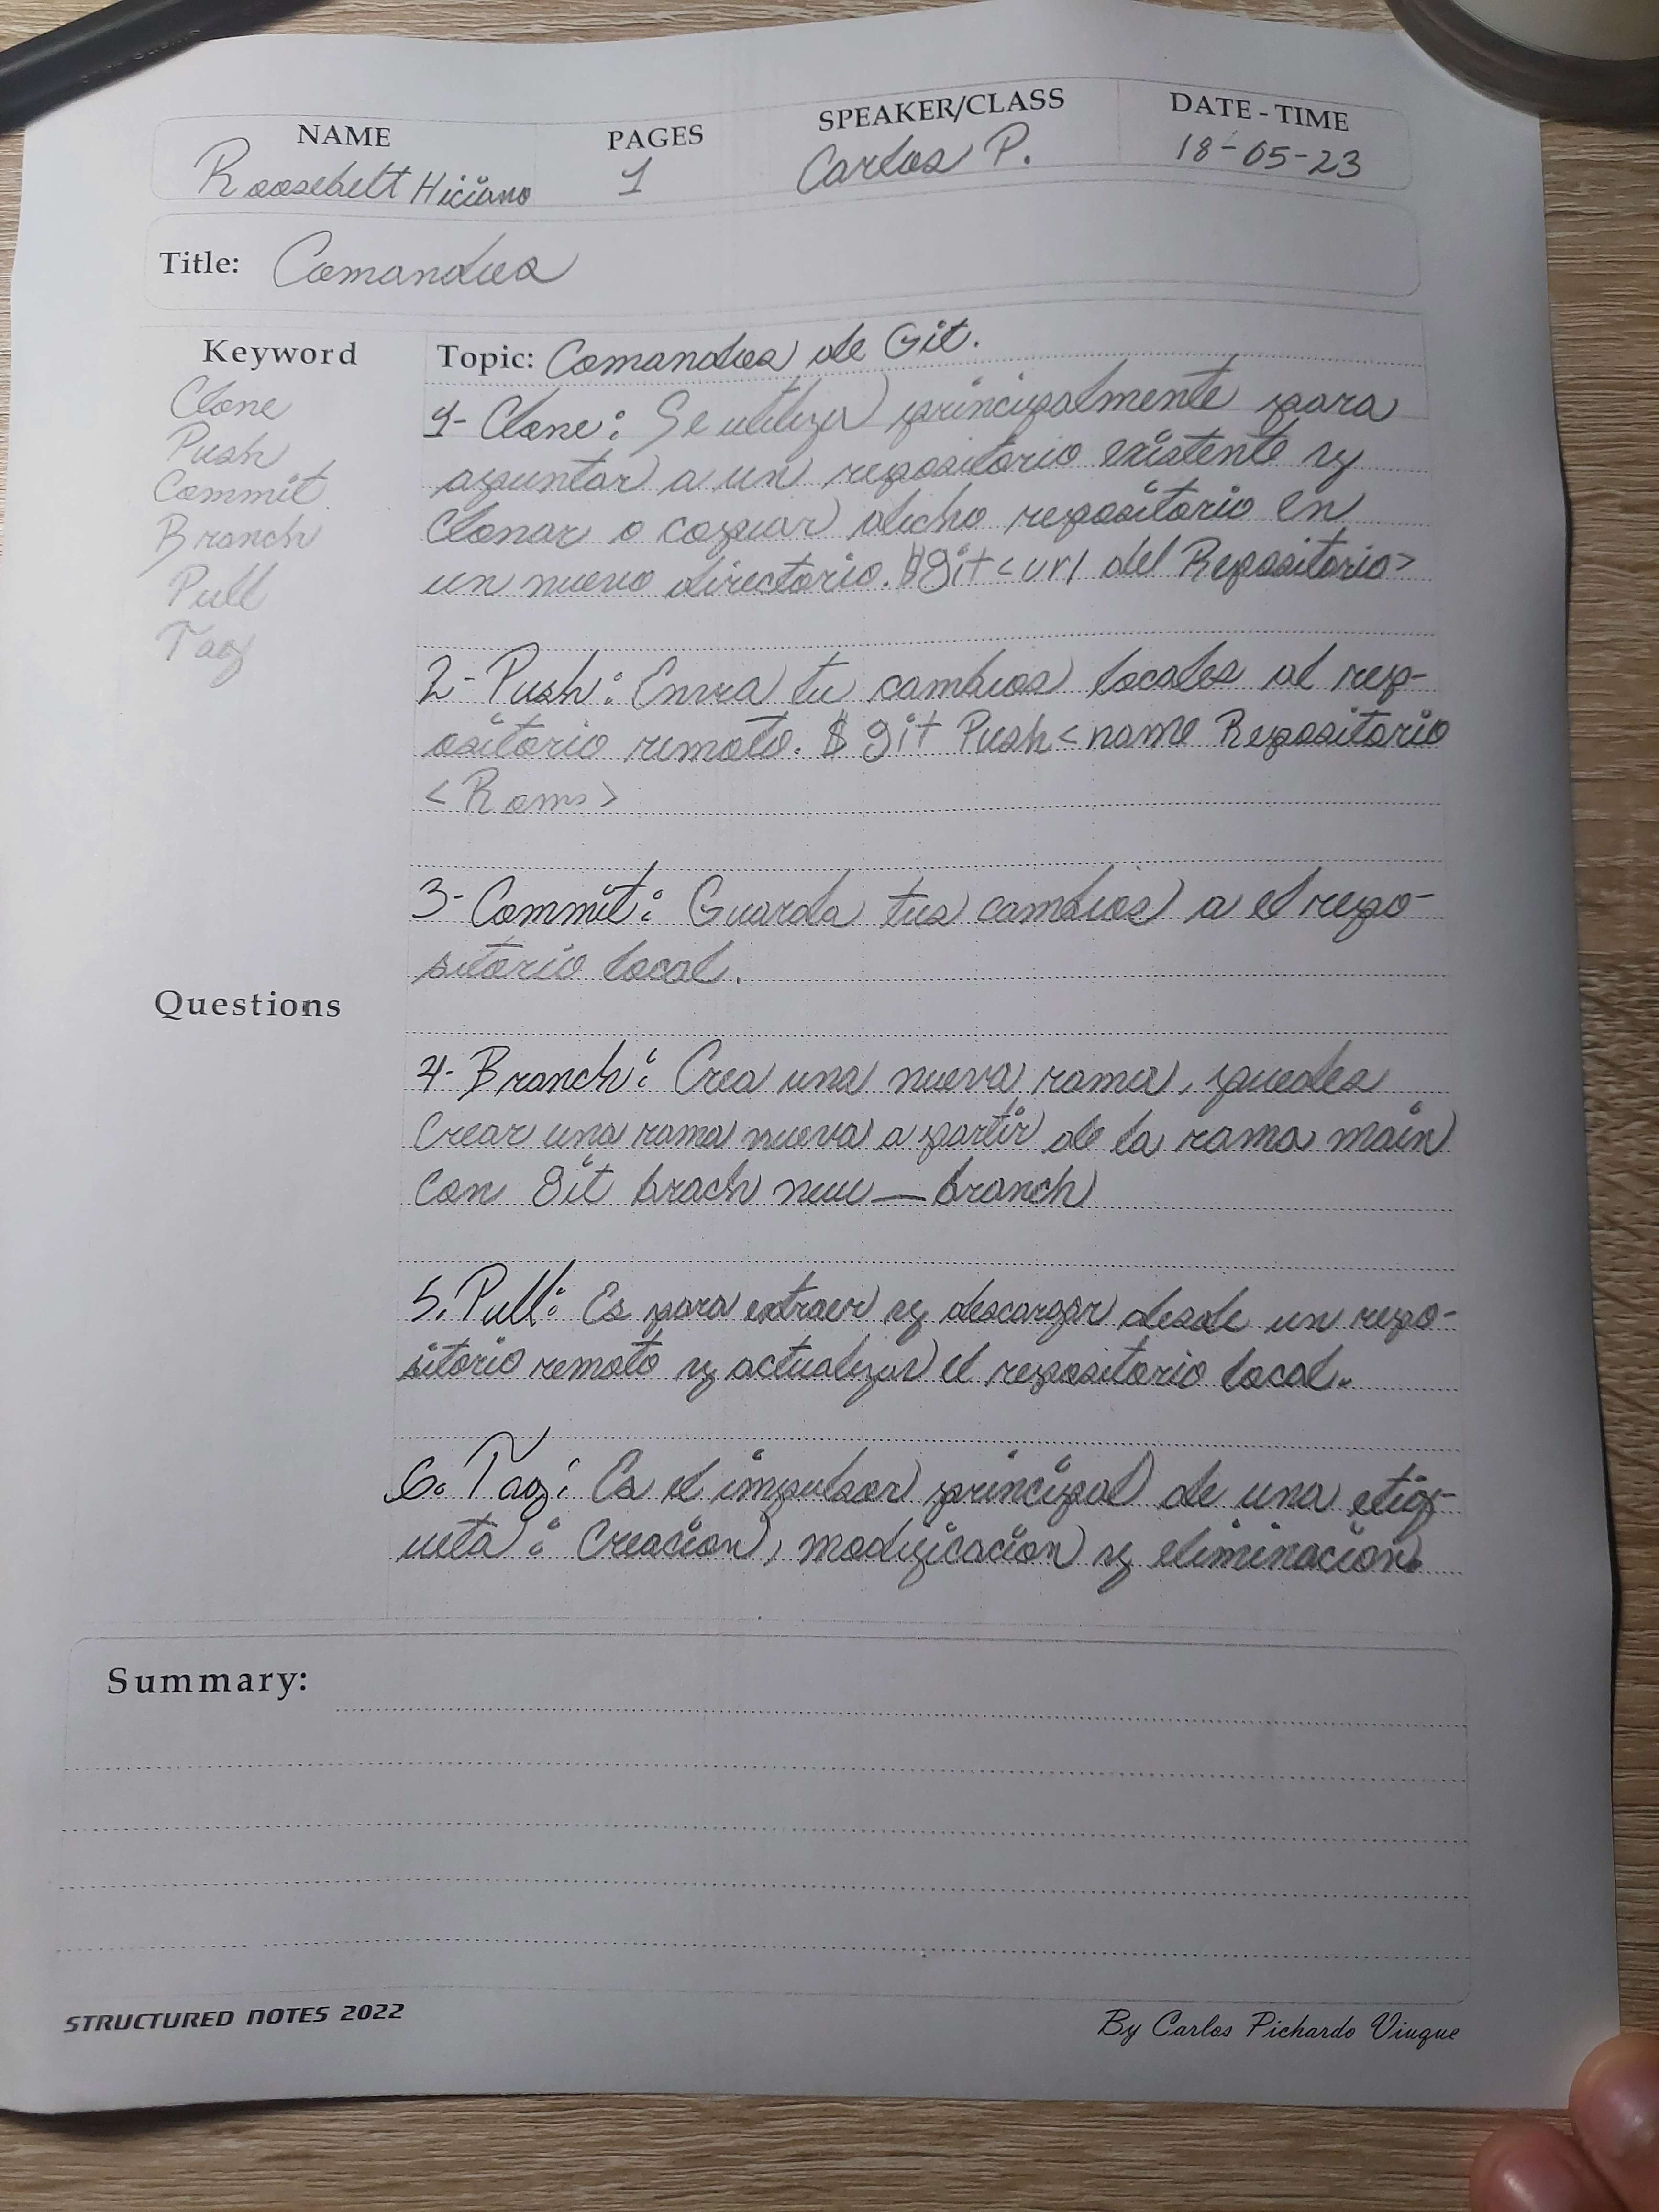 NAME PAGES SPEAKER/CLASS DATE - TIME
Roosebelt Hiciano 1 Carlos P. 18-05-23
Title: Comandos
Keyword
Clone
Push
Commit.
Branch
Pull
Tag
Topic: Comandos de Git.
1- Clone: Se utiliza principalmente para
apuntar a un repositorio existente y
Clonar o copiar dicho repositorio en
un nuevo directorio. $git <url del Repositorio>
2- Push: Envia tu cambios locales al rep-
ositorio remoto. $ git Push <name Repositorio
<Rama>
3- Commit: Guarda tus cambios a el repo-
sitorio local.
Questions
4- Branch: Crea una nueva rama, puedes
Crear una rama nueva a partir de la rama main
Con Git brach new_branch
5. Pull: Es para extraer y descargar desde un repo-
sitorio remoto y actualizar el repositorio local.
6. Tag: Es el impulsor principal de una etiq-
ueta: Creacion, modificacion y eliminacion.
Summary:
STRUCTURED NOTES 2022
By Carlos Pichardo Viuque